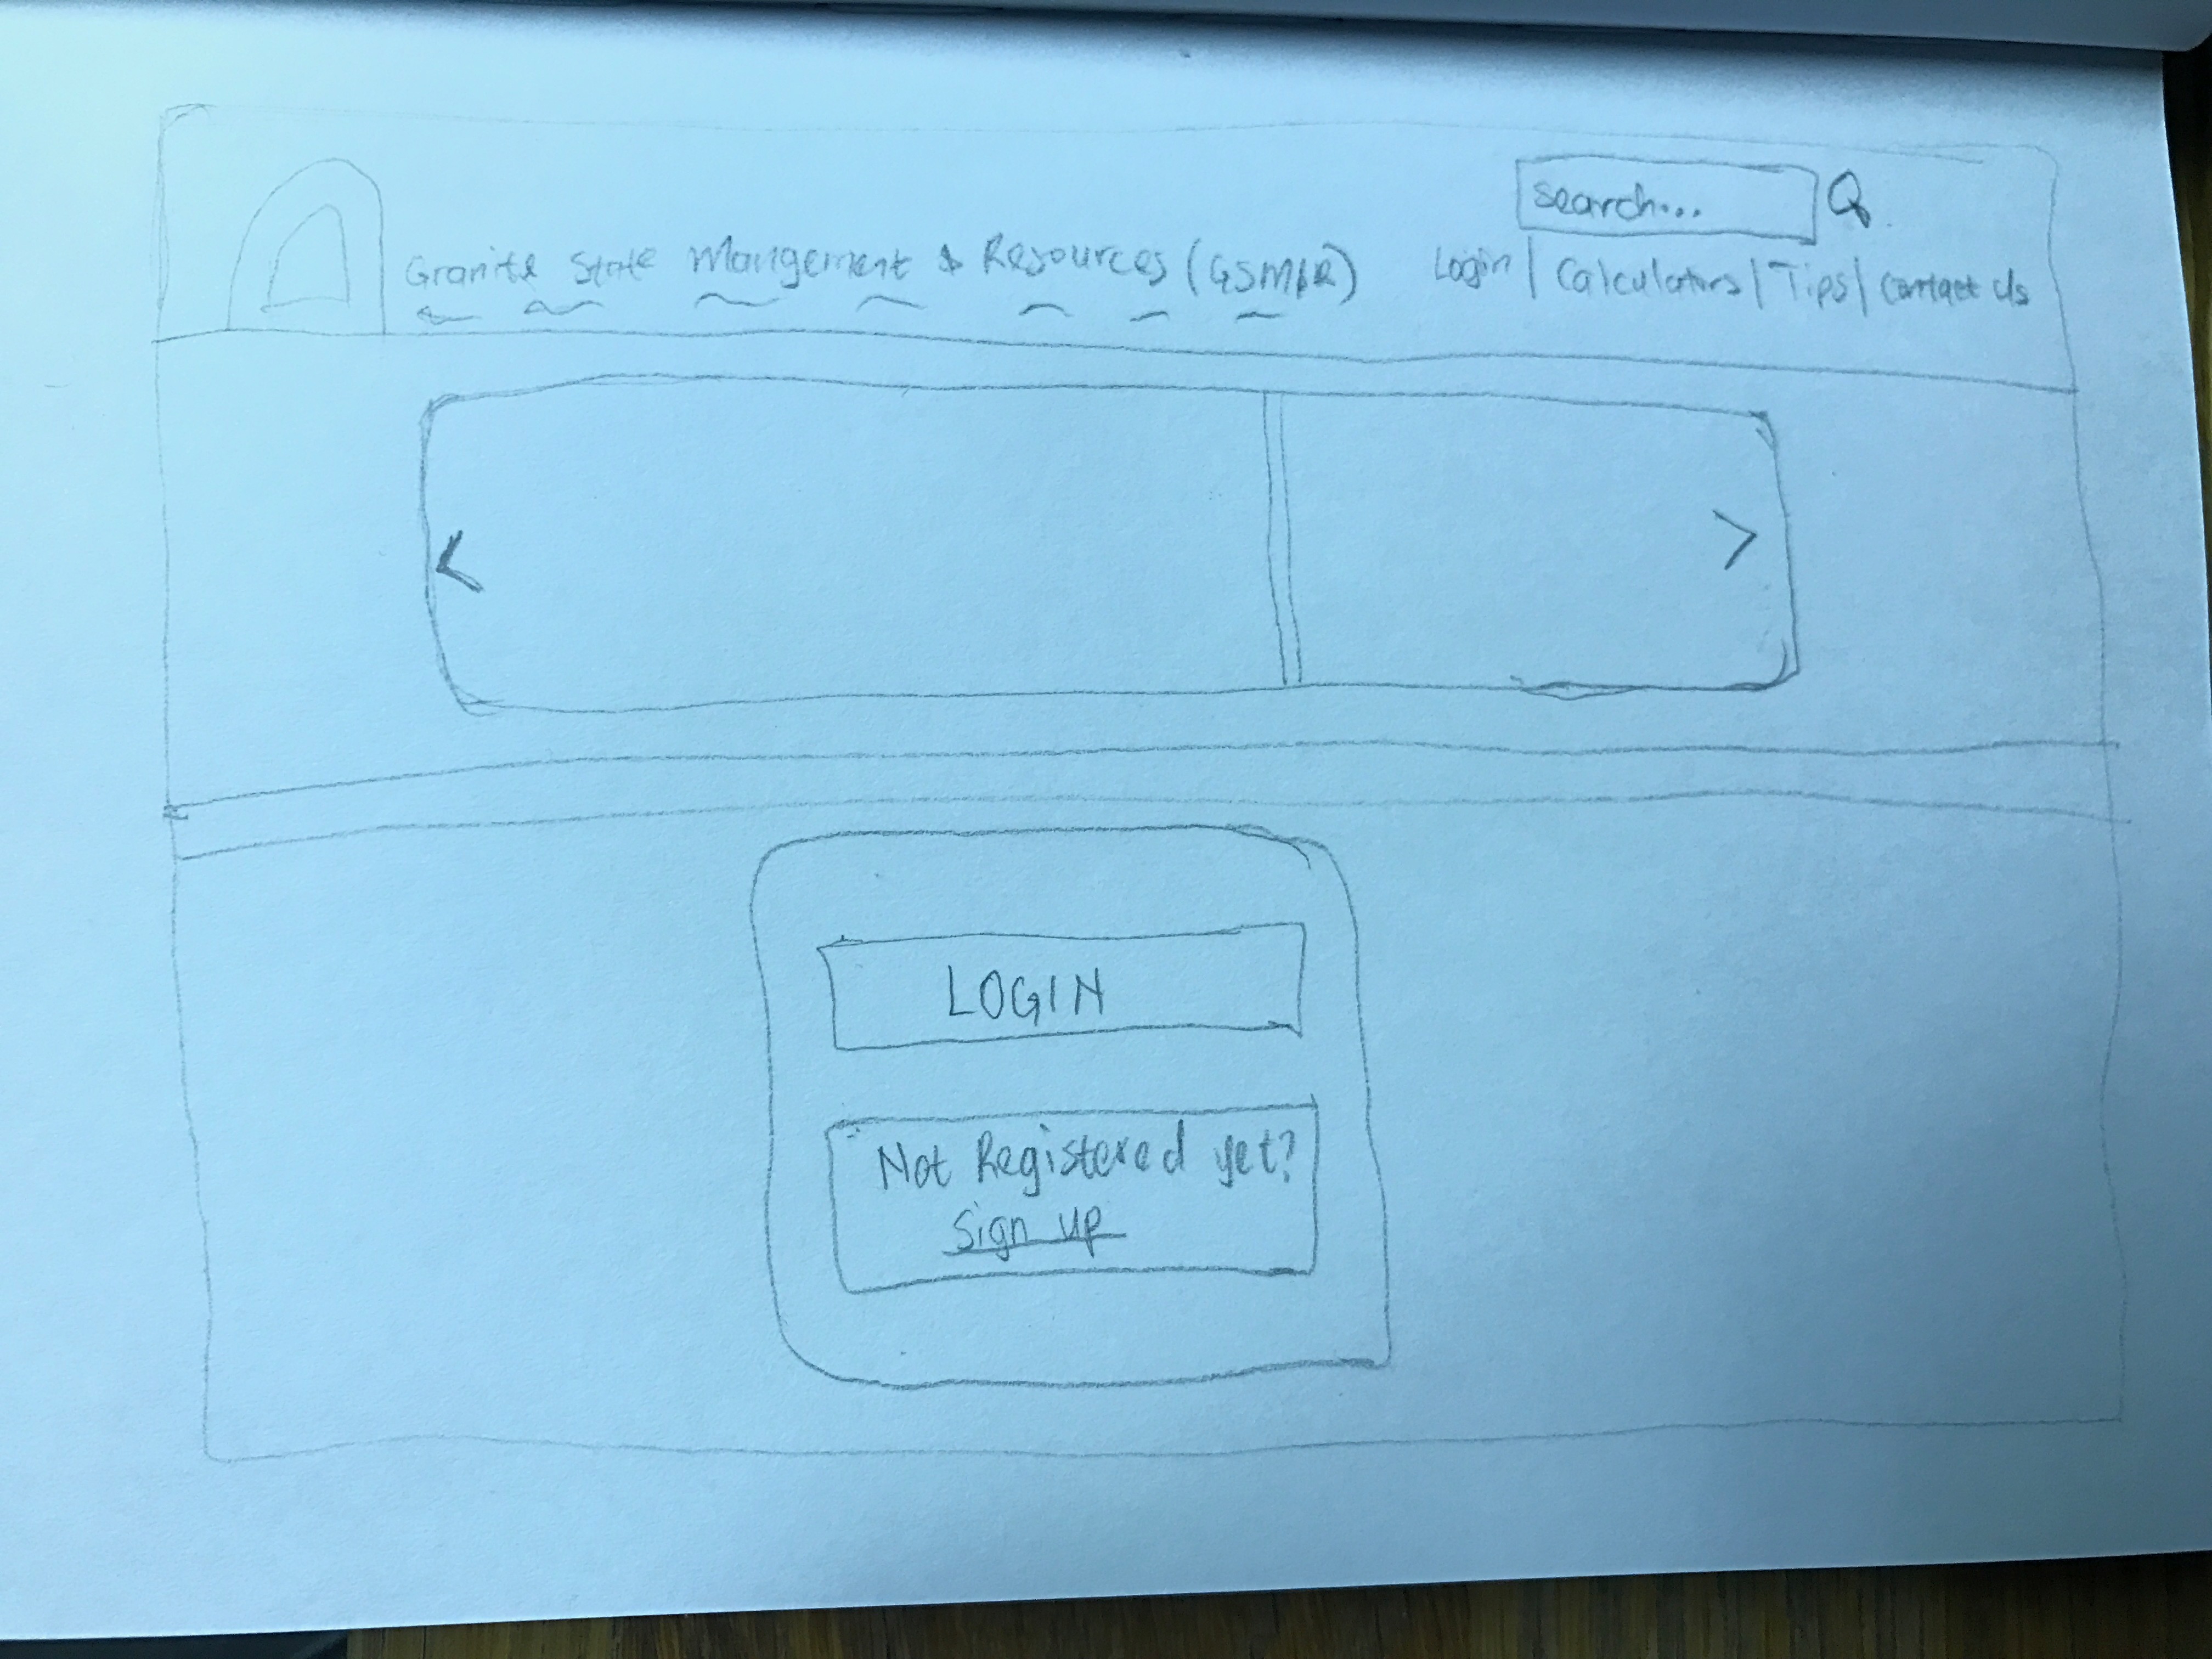 search...
Granite State Mangement & Resources (GSM&R)
Login | Calculators | Tips | Contact Us
<
>
LOGIN
Not Registered yet?
Sign up